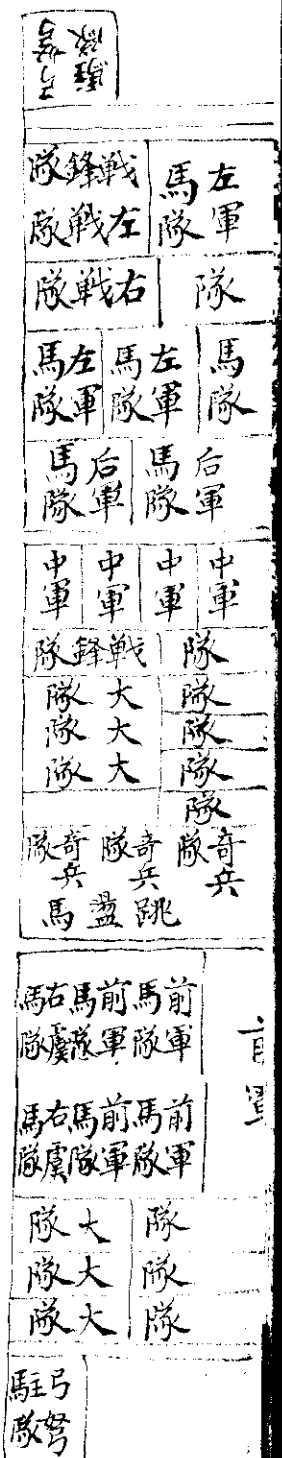 弩
駐隊
左軍
馬隊
戦鋒隊
左戦隊
隊
右戦隊
馬隊
左軍
馬隊
左軍
馬隊
后軍
馬隊
后軍
馬隊
中軍
中軍
中軍
中軍
隊
戦鋒隊
隊
大隊
隊
大隊
隊
大隊
隊
奇兵隊
奇兵隊
奇兵隊
跳盪馬
前軍
前軍
馬隊
前軍
馬隊
右虞
馬隊
前軍
馬隊
前軍
馬隊
右虞
馬隊
隊
大隊
隊
大隊
隊
大隊
弓弩
駐隊